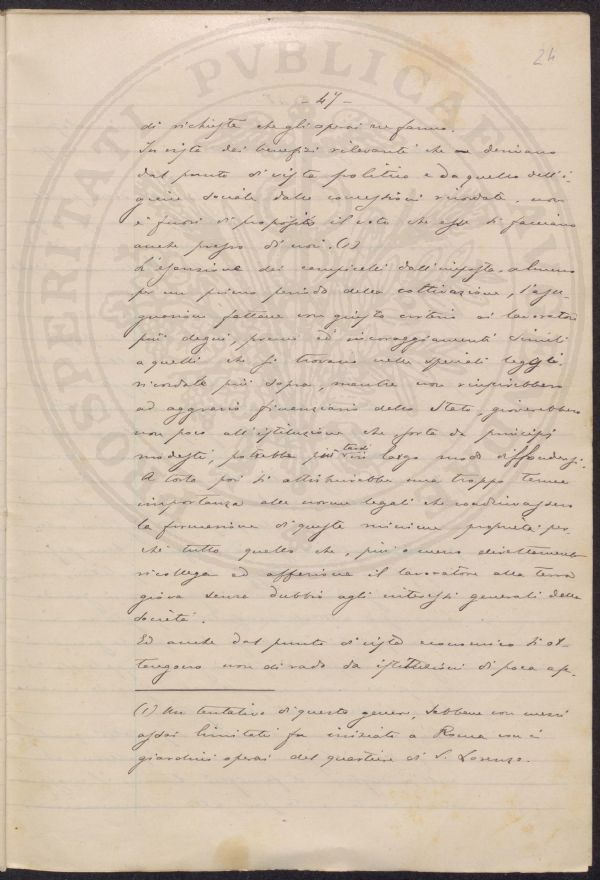 24
PROSPERITATI PVBLICAE
- 47 -
di richieste che gli operai ne fanno.
In vista dei benefizi rilevanti che ne derivano
dal punto di vista politico e da quello dell'i-
giene sociale dalle concessioni ricordate, non
è fuori di proposito il voto che esse si facciano
anche presso di noi. (1)
L'esenzione dei campicelli dall'imposta, almeno
per un primo periodo della coltivazione, l'asse-
gnazione fattane con giusto criterio ai lavoratori
più degni, premi ed incoraggiamenti simili
a quelli che si trovano nelle speciali leggi
ricordate più sopra, mentre non riuscirebbero
ad aggravio finanziario dello Stato, gioverebbero
non poco all'istituzione che, sorta da principi
modesti, potrebbe più tardi in largo modo diffondersi.
A torto poi si attribuirebbe una troppo tenue
importanza alle norme legali che coadiuvassero
la formazione di queste minime proprietà per-
chè tutto quello che, più o meno direttamente
ricollega ed affeziona il lavoratore alla terra
giova senza dubbio agli interessi generali della
società.
Ed anche dal punto di vista economico si ot-
tengono non di rado da istituzioni di poca ap-
(1) Un tentativo di questo genere, sebbene con mezzi
assai limitati fu iniziato a Roma con i
giardini operai del quartiere di S. Lorenzo.